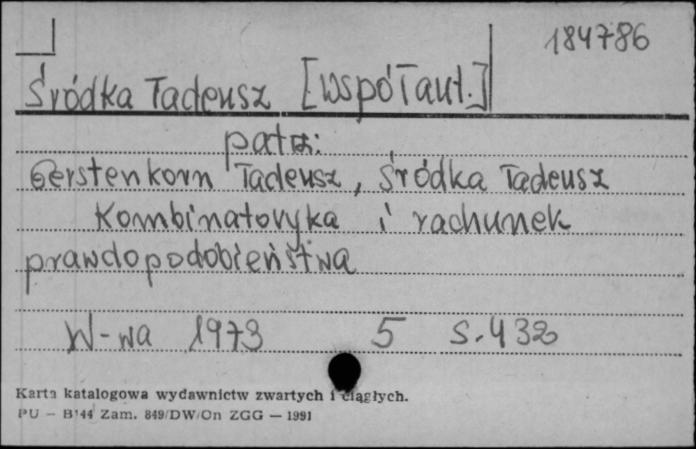 184786
Śródka Tadeusz [współaut.]
patrz:
Gerstenkorn Tadeusz, Śródka Tadeusz
Kombinatoryka i rachunek
prawdopodobieństwa
W-wa 1973 5 s. 432
Karta katalogowa wydawnictw zwartych i ciągłych.
PU — B144 Zam. 849/DW/On ZGG — 1991